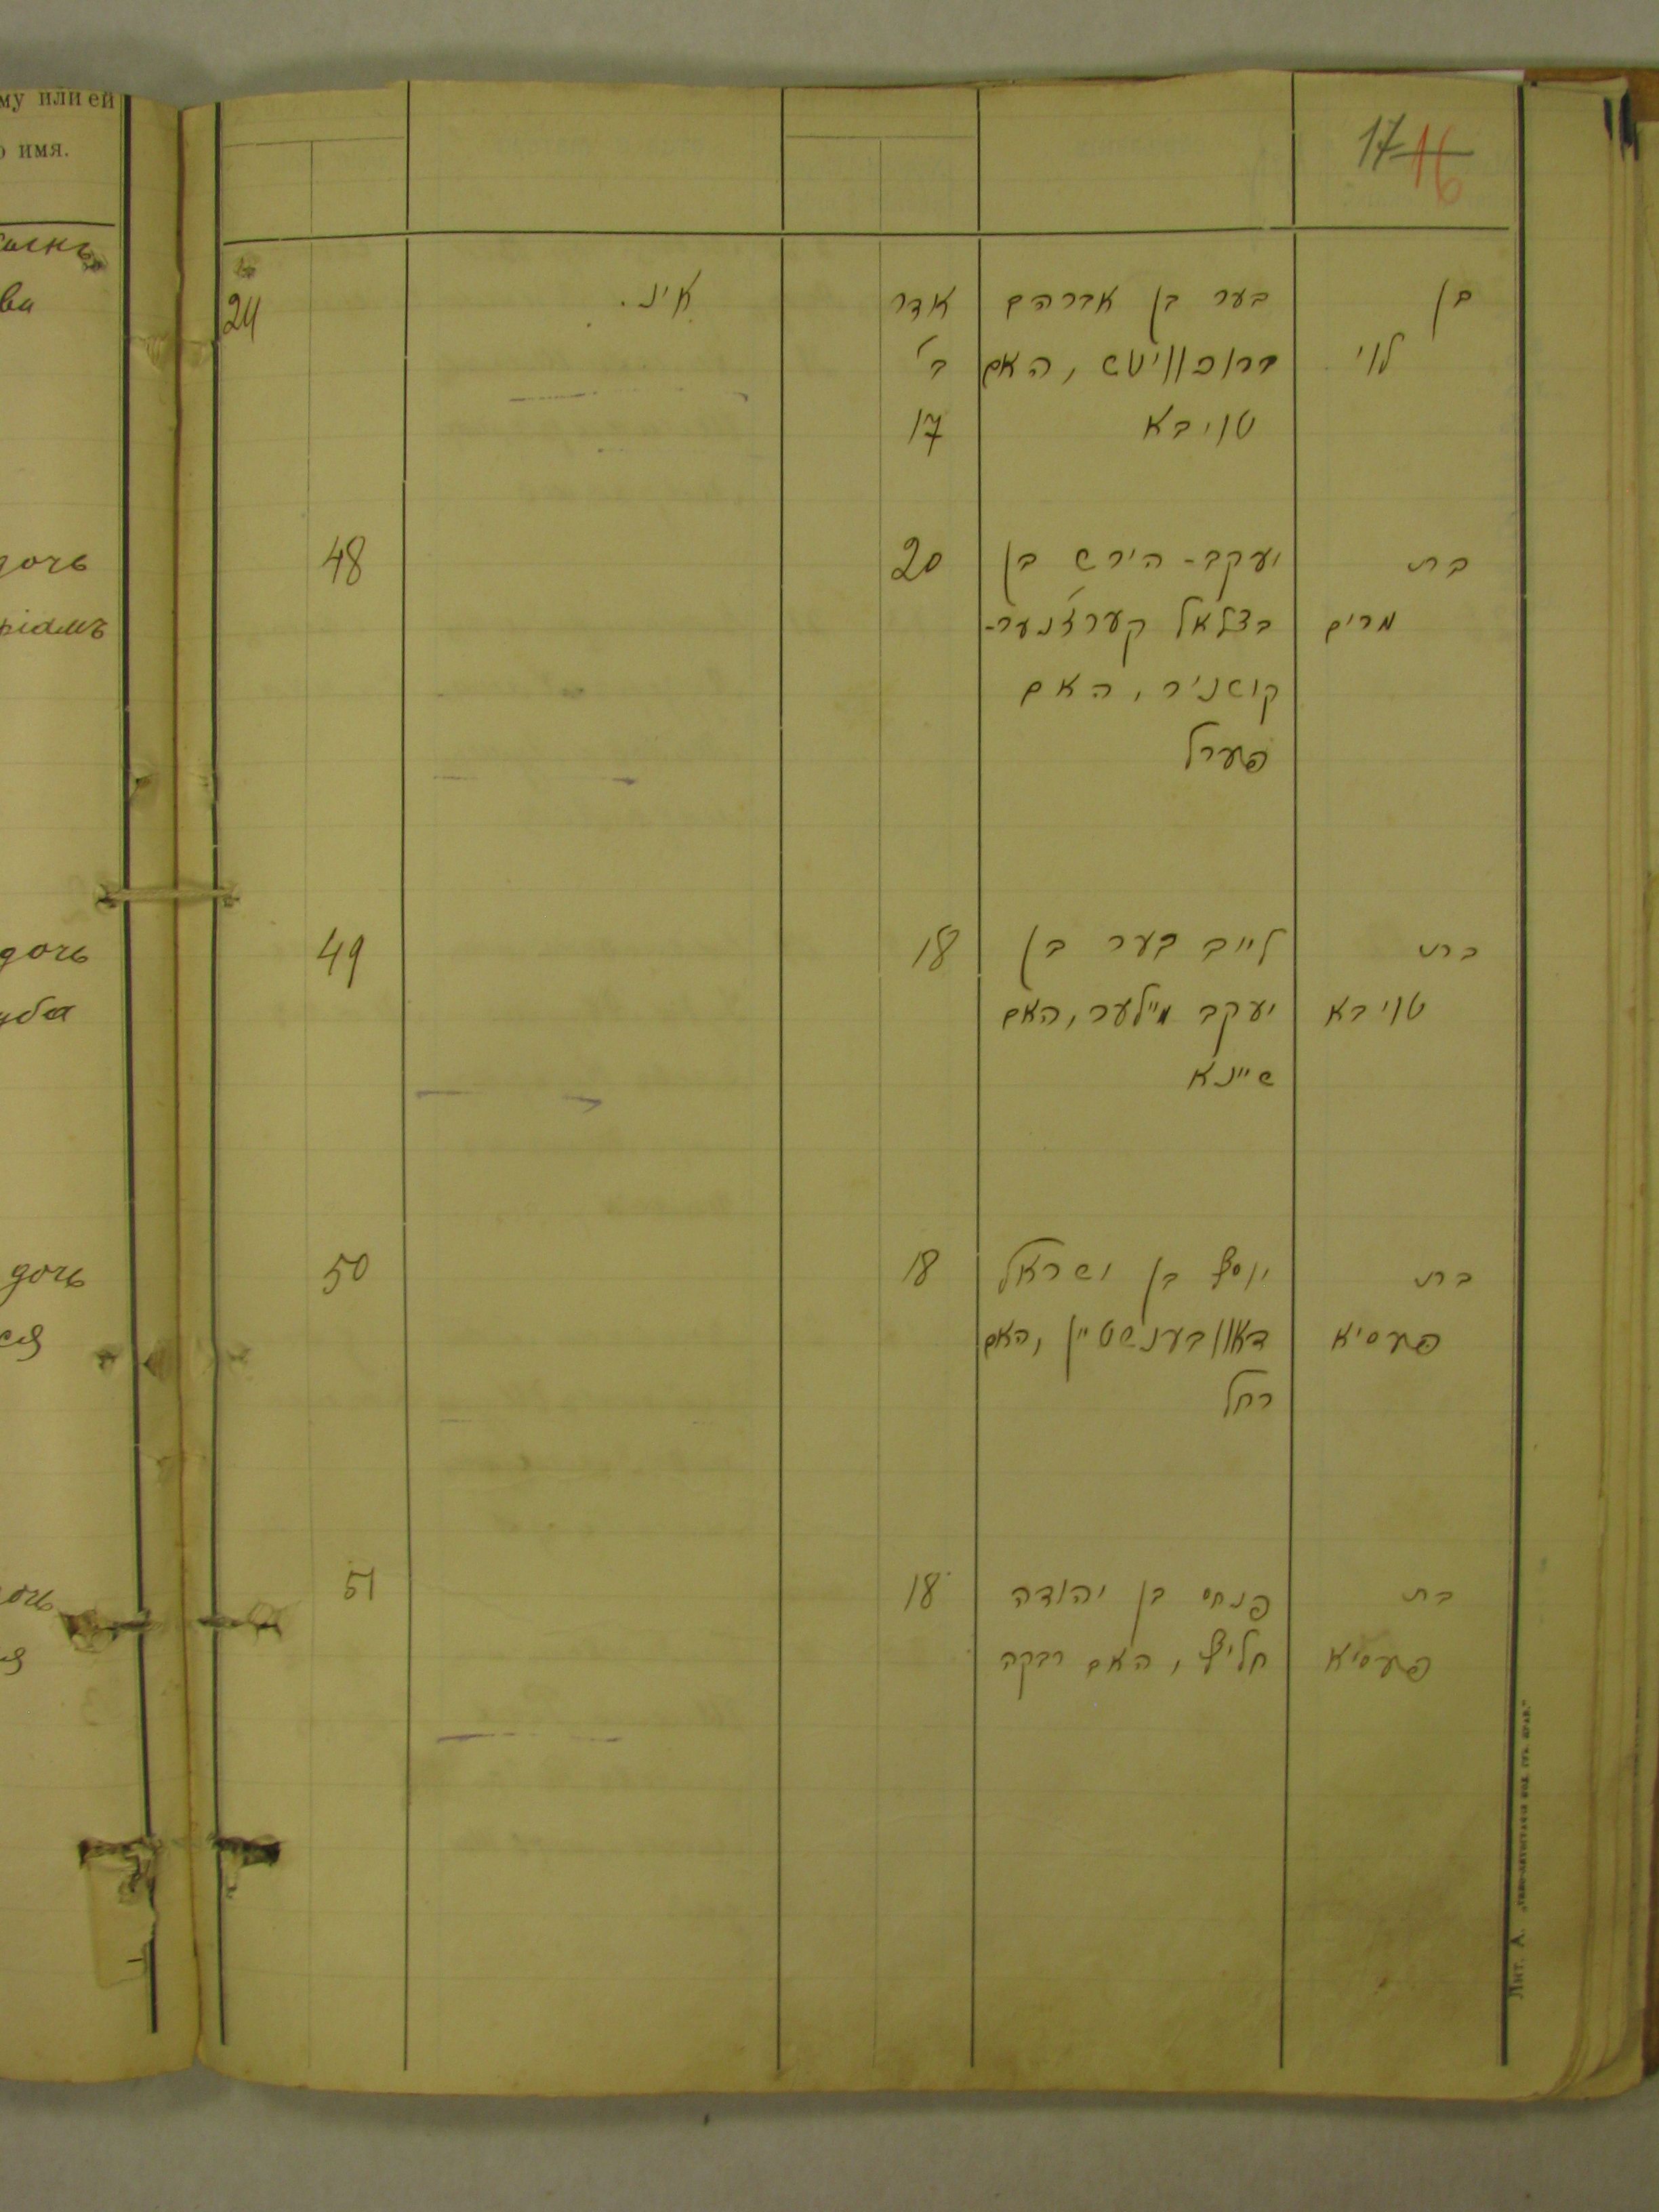 му или ей
о имя.
ва
дочь
ріамъ
дочь
уба
дочь
ся
очь
я
17 16
24 אינ. אדר בער בן אברהם בן
ב' ברוכוויטש, האם לוי
17 טויבא
48 20 יעקב-הירש בן בת
בצלאל קערזנער- מרים
קושניר, האם
פערל
49 18 לייב בער בן בת
יעקב מיילער, האם טויבא
שיינא
50 18 יוסף בן ישראל בת
דאוובענשטיין, האם פעסיא
רחל
51 18 פנחס בן יהודה בת
חליף, האם רבקה פעסיא
Лит. А.